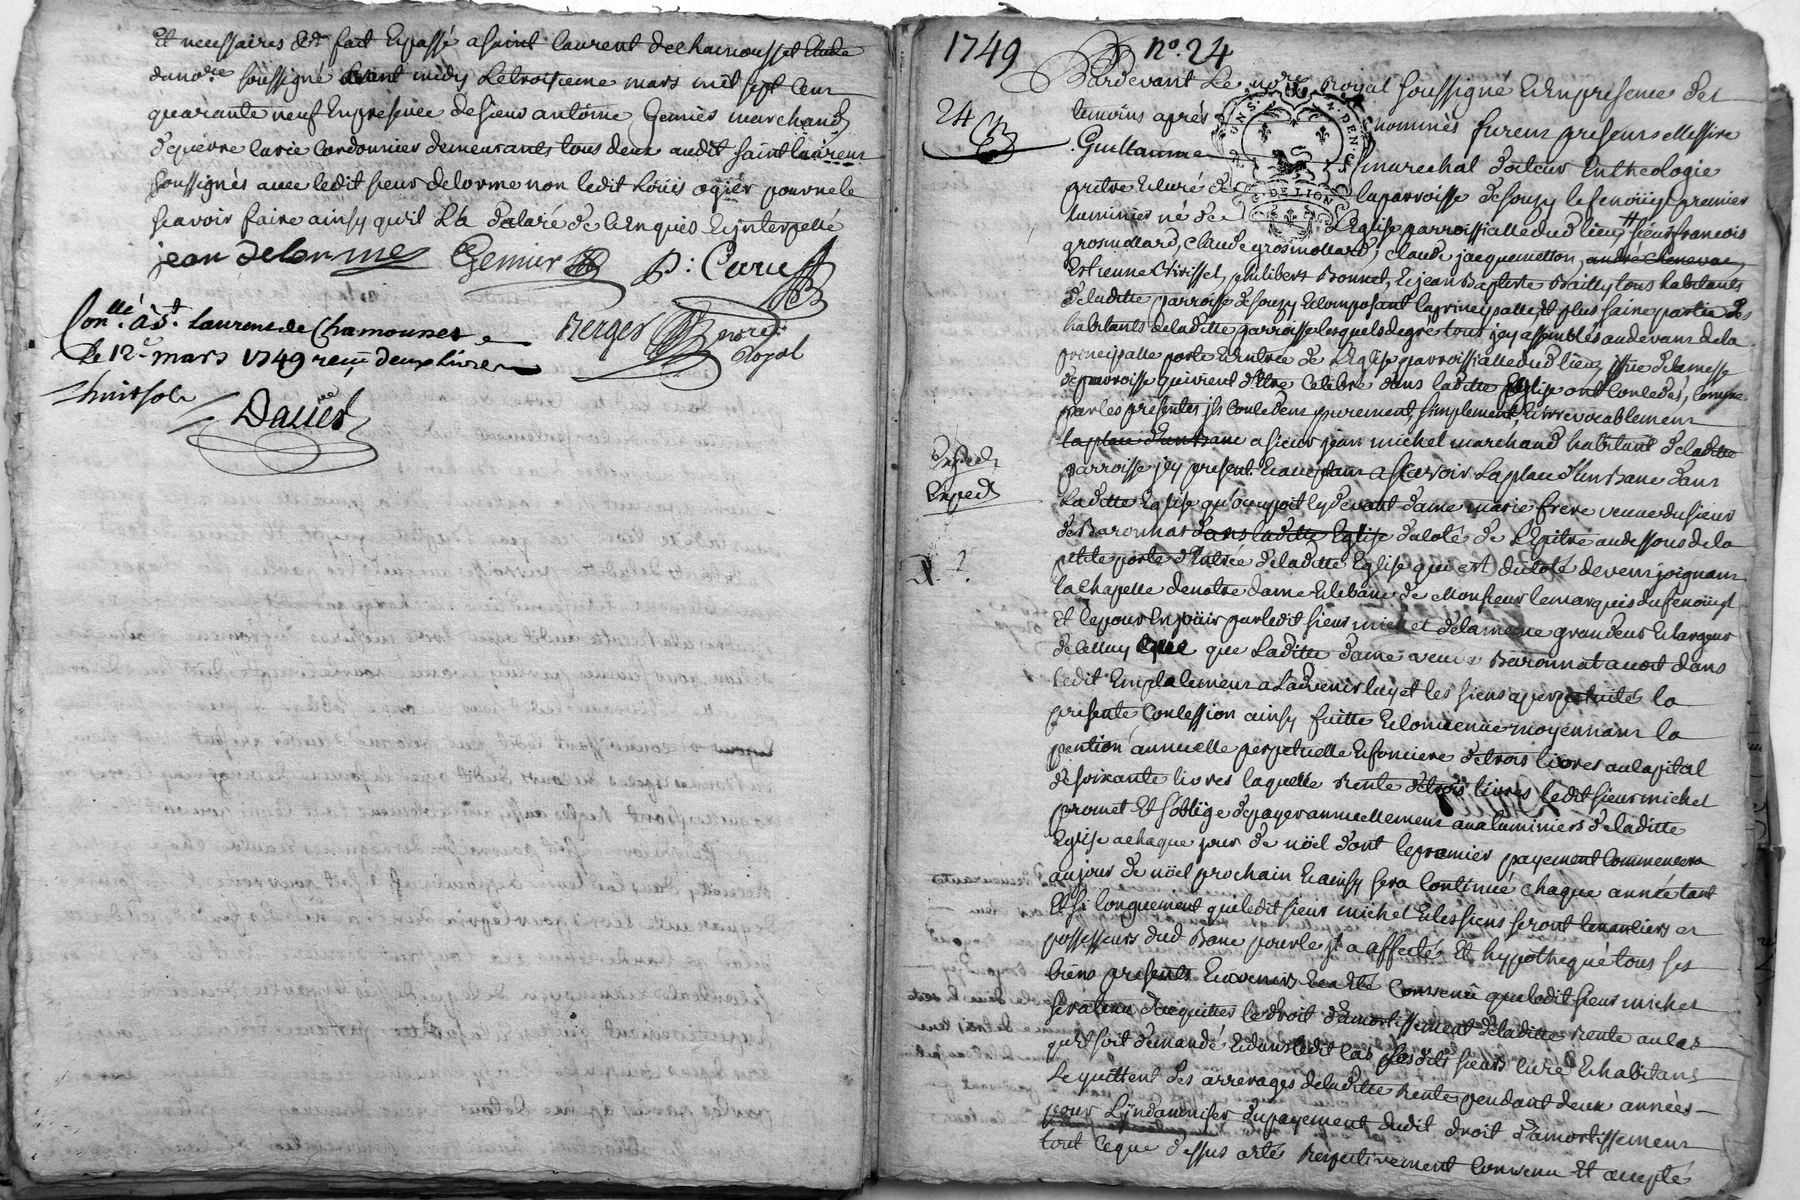 Et necessaires &c.t fait Et passé a saint laurent de chamousset Etude
du no.re soussigné avant midy Le troisieme mars mil sept Cent
quarante neuf En presence de sieur antoine Gemier marchand
Et pierre Curie Cordonnier demeurants tous deux audit saint laurent
soussignés avec ledit sieur delorme non ledit Loüis ogier pour ne le
sçavoir faire ainsy quil L'a declaré de ce Enquis Et interpellé
jean delorme Gemier P: Curie
Con.llé a S.t Laurent de Chamousset
Le 12.e mars 1749 reçu deux livres
huit sols
Berger no.re Royal
Dalier
1749 n.o 24
Pardevant Le no.re Royal soussigné Et En presence des
24
temoins aprés nommés furent presens Messire
Guillaume marechal docteur En theologie
prêtre Et curé de la parroisse de souzy le fenoüyl premier
luminier né de L'Eglise parroissialle dud lieu sieur francois
grosmollard, claude grosmollard, claude jacquemetton, andré
Estienne Crivissel, philibert Bonnet, Et jean Baptiste Bailly tous habitants
de laditte parroisse de souzy Et composant la principalle Et plus saine partie des
habitants de laditte parroisse lesquels de gré tous jcy assemblés au devant de la
principalle porte Et Entrée de L'Eglise parroissialle dud lieu issüe de la messe
de parroisse qui vient d'Etre Celebré dans laditte Eglise ont Concedés, Comme
par les presentes jls Concedent purement, simplement, Et irrevocablement
la place d'un banc a sieur jean michel marchand habitant de laditte
Exped.
Exped.
parroisse jcy present Et acceptant a sçavoir La place d'un Banc dans
Laditte Eglise qu'occupoit Cy devant dame marie frere veuve du sieur
de Baronnat dans laditte Eglise du coté de L'Epitre au dessous de la
petite porte d'Entrée de laditte Eglise qui est du coté de vent joignant
la chapelle de notre dame Et le banc de Monsieur le marquis du fenoüyl
Et le pour En joüir par ledit sieur michel de la meme grandeur Et largeur
de celluy que Laditte dame veuve Baronnat avoit dans
ledit Emplacement a L'advenir luy et les siens a perpetuité la
presente Concession ainsy faitte Et Convenüe moyennant la
pention annuelle perpetuelle Et fonciere de trois livres au capital
de soixante livres laquelle Rente de trois livres ledit sieur michel
promet Et s'oblige de payer annuellement aux luminiers de laditte
Eglise a chaque jour de nöel dont le premier payement Commencera
au jour de nöel prochain Et ainsy sera Continué chaque année tant
Et si longuement que ledit sieur michel Et les siens seront tenantiers et
possesseurs dud Banc pour le q.l a affecté Et hypothequé tous ses
biens presents Et avenirs Et a Eté Convenu que ledit sieur michel
sera tenu d'acquitter le droit d'amortissement de laditte Rente au cas
qu'il soit demandé Et dans ledit cas lesdits sieurs curé Et habitans
Le quittent des arrerages de laditte Rente pendant deux années
pour L'indamniser du payement dudit droit d'amortissement
tout ce que dessus a eté Respectivement Convenu Et accepté